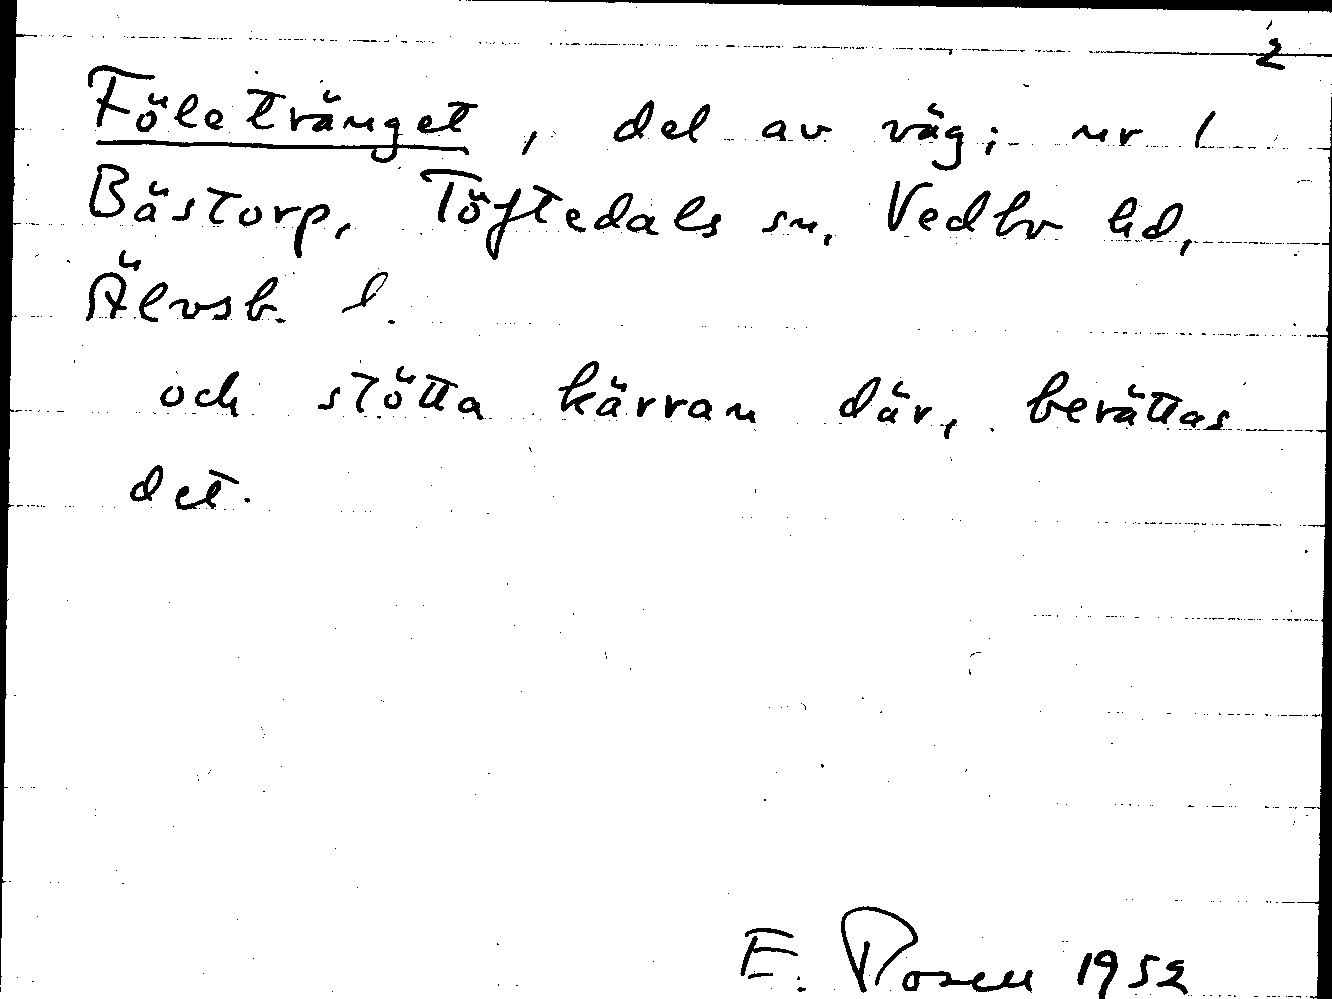 2
Föletränget, del av väg; nr 1
Bästorp, Töftedals sn, Vedbo hd,
Älvsb. l.
och stötta kärran där, berättas
det.
E. Rosen 1952